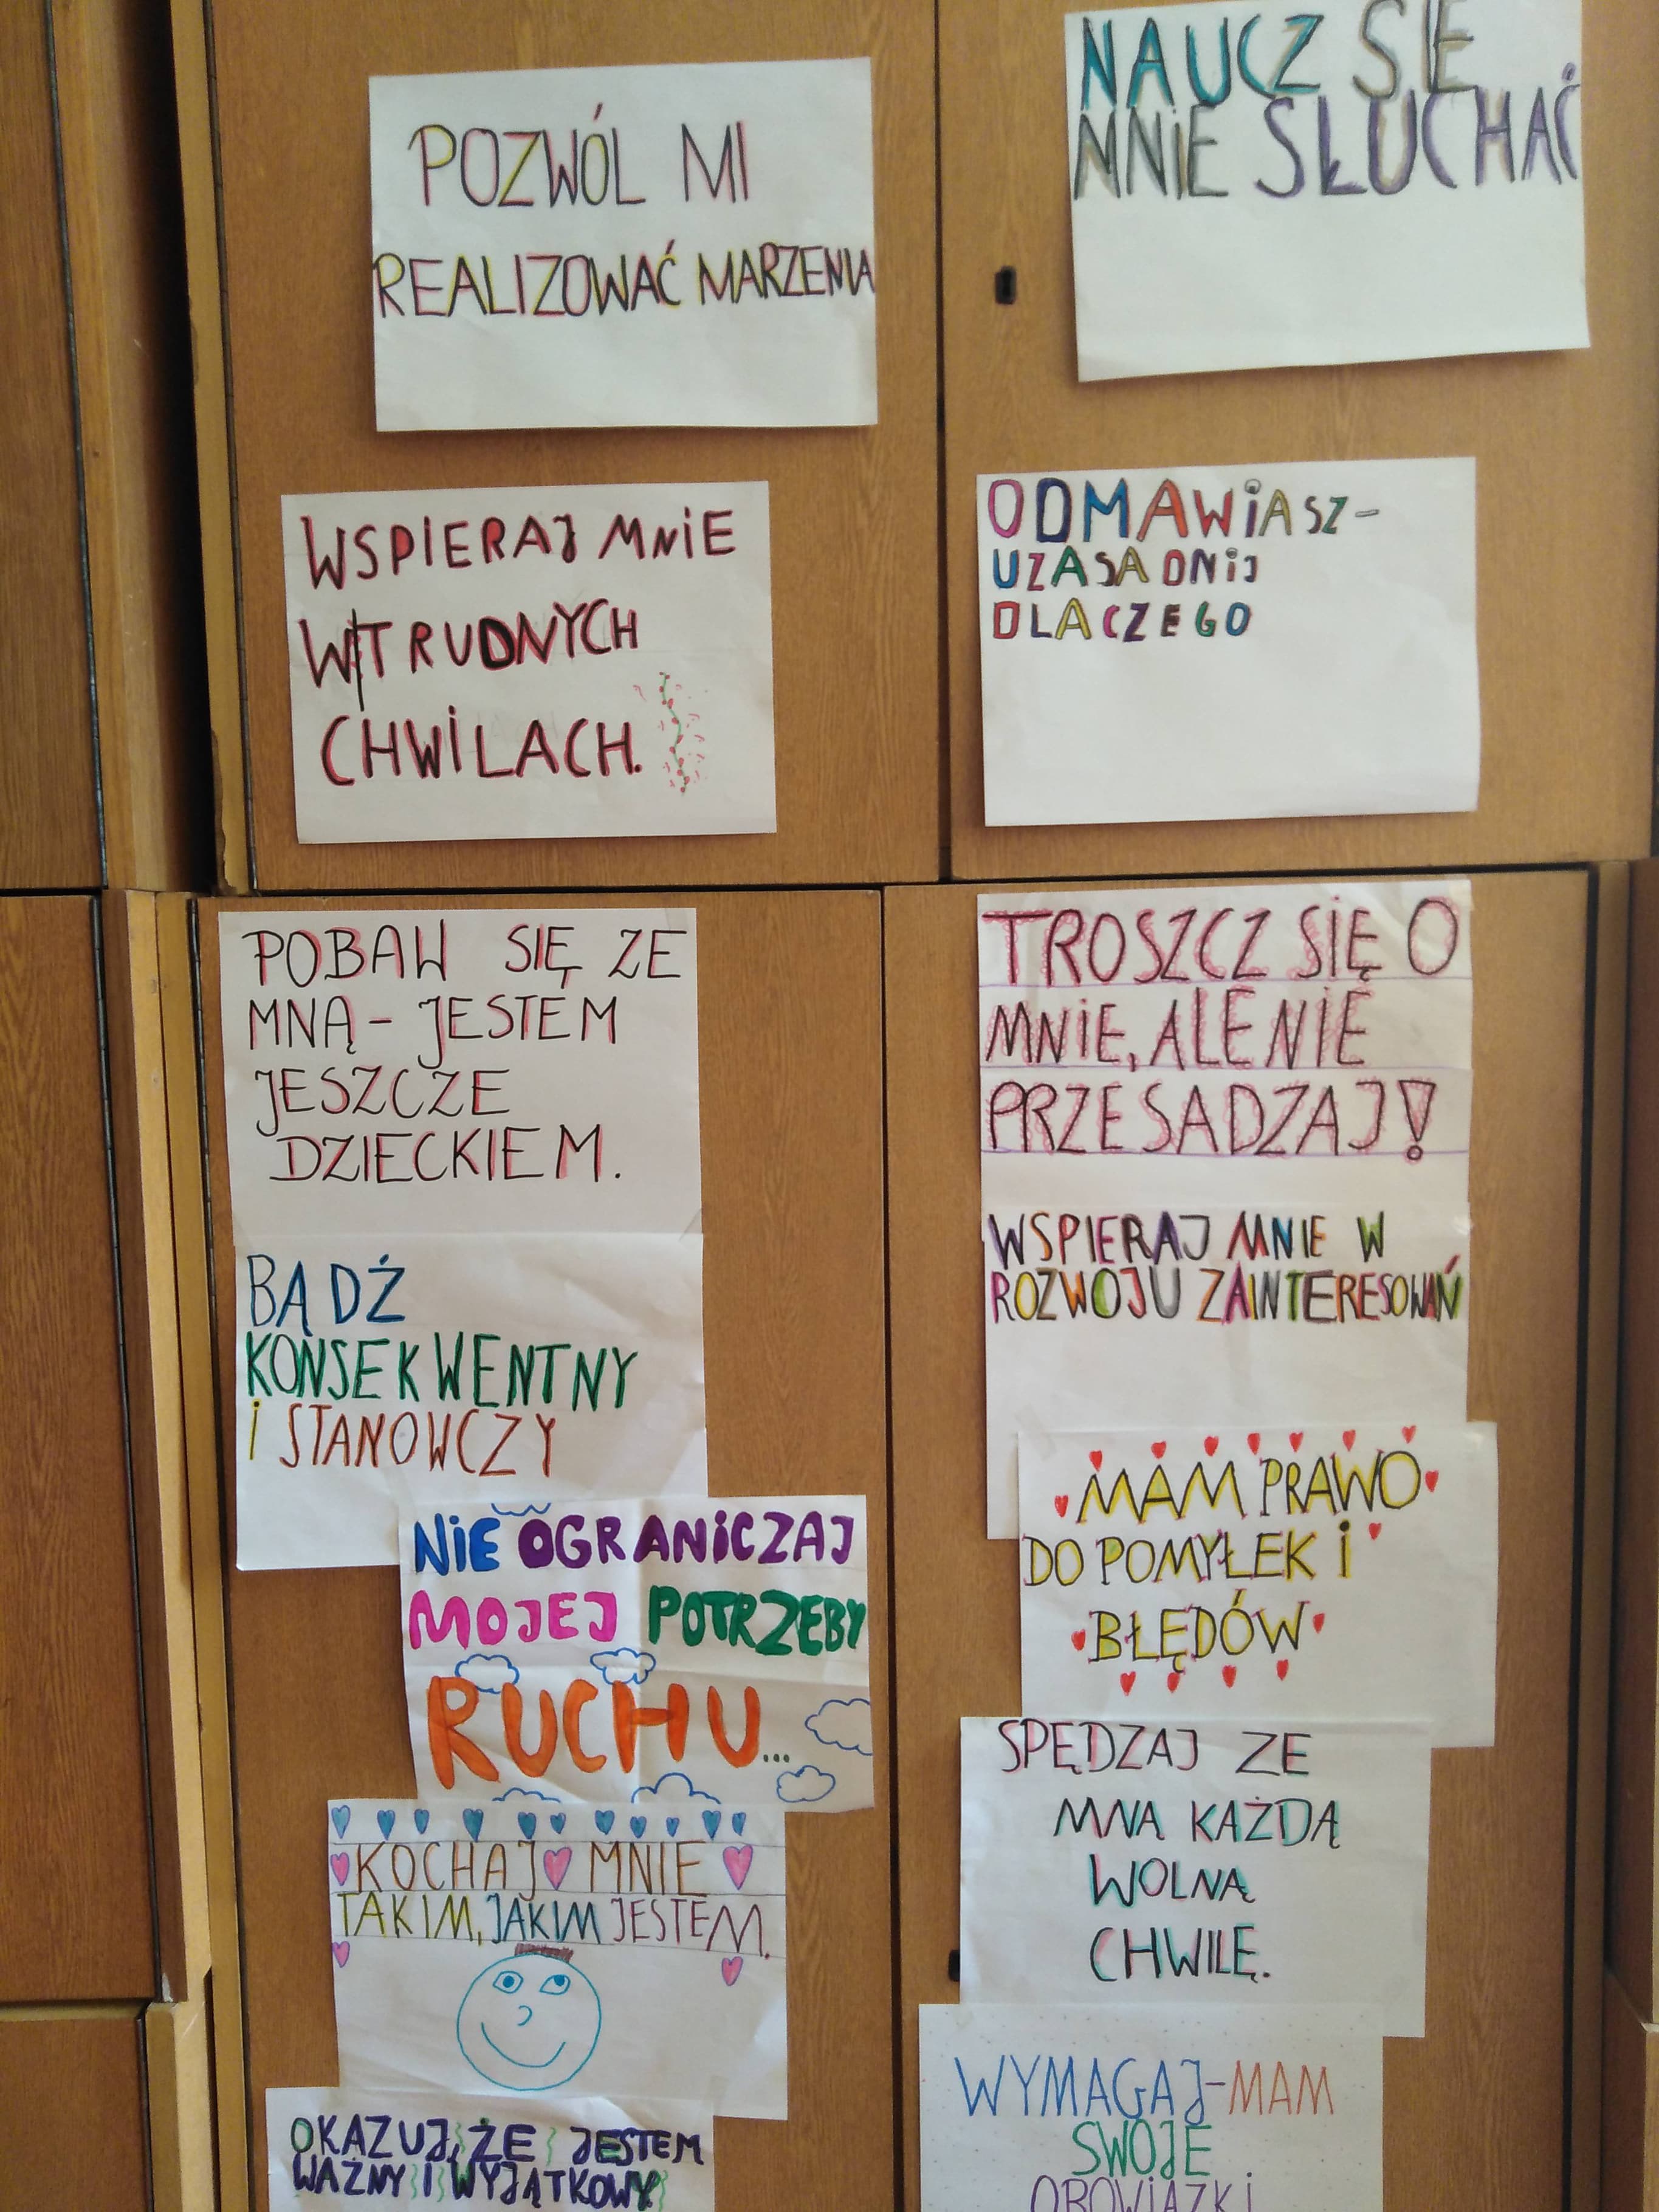 POZWÓL MI
REALIZOWAĆ MARZENIA
NAUCZ SIĘ
MNIE SŁUCHAĆ
WSPIERAJ MNIE
W TRUDNYCH
CHWILACH.
ODMAWIASZ-
UZASADNIJ
DLACZEGO
POBAW SIĘ ZE
MNĄ - JESTEM
JESZCZE
DZIECKIEM.
TROSZCZ SIĘ O
MNIE, ALE NIE
PRZESADZAJ!
BĄDŹ
KONSEKWENTNY
I STANOWCZY
WSPIERAJ MNIE W
ROZWOJU ZAINTERESOWAŃ
NIE OGRANICZAJ
MOJEJ POTRZEBY
RUCHU...
MAM PRAWO
DO POMYŁEK I
BŁĘDÓW
KOCHAJ MNIE
TAKIM, JAKIM JESTEM.
SPĘDZAJ ZE
MNĄ KAŻDĄ
WOLNĄ
CHWILĘ.
OKAZUJ, ŻE JESTEM
WAŻNY I WYJĄTKOWY
WYMAGAJ-MAM
SWOJE
OBOWIĄZKI